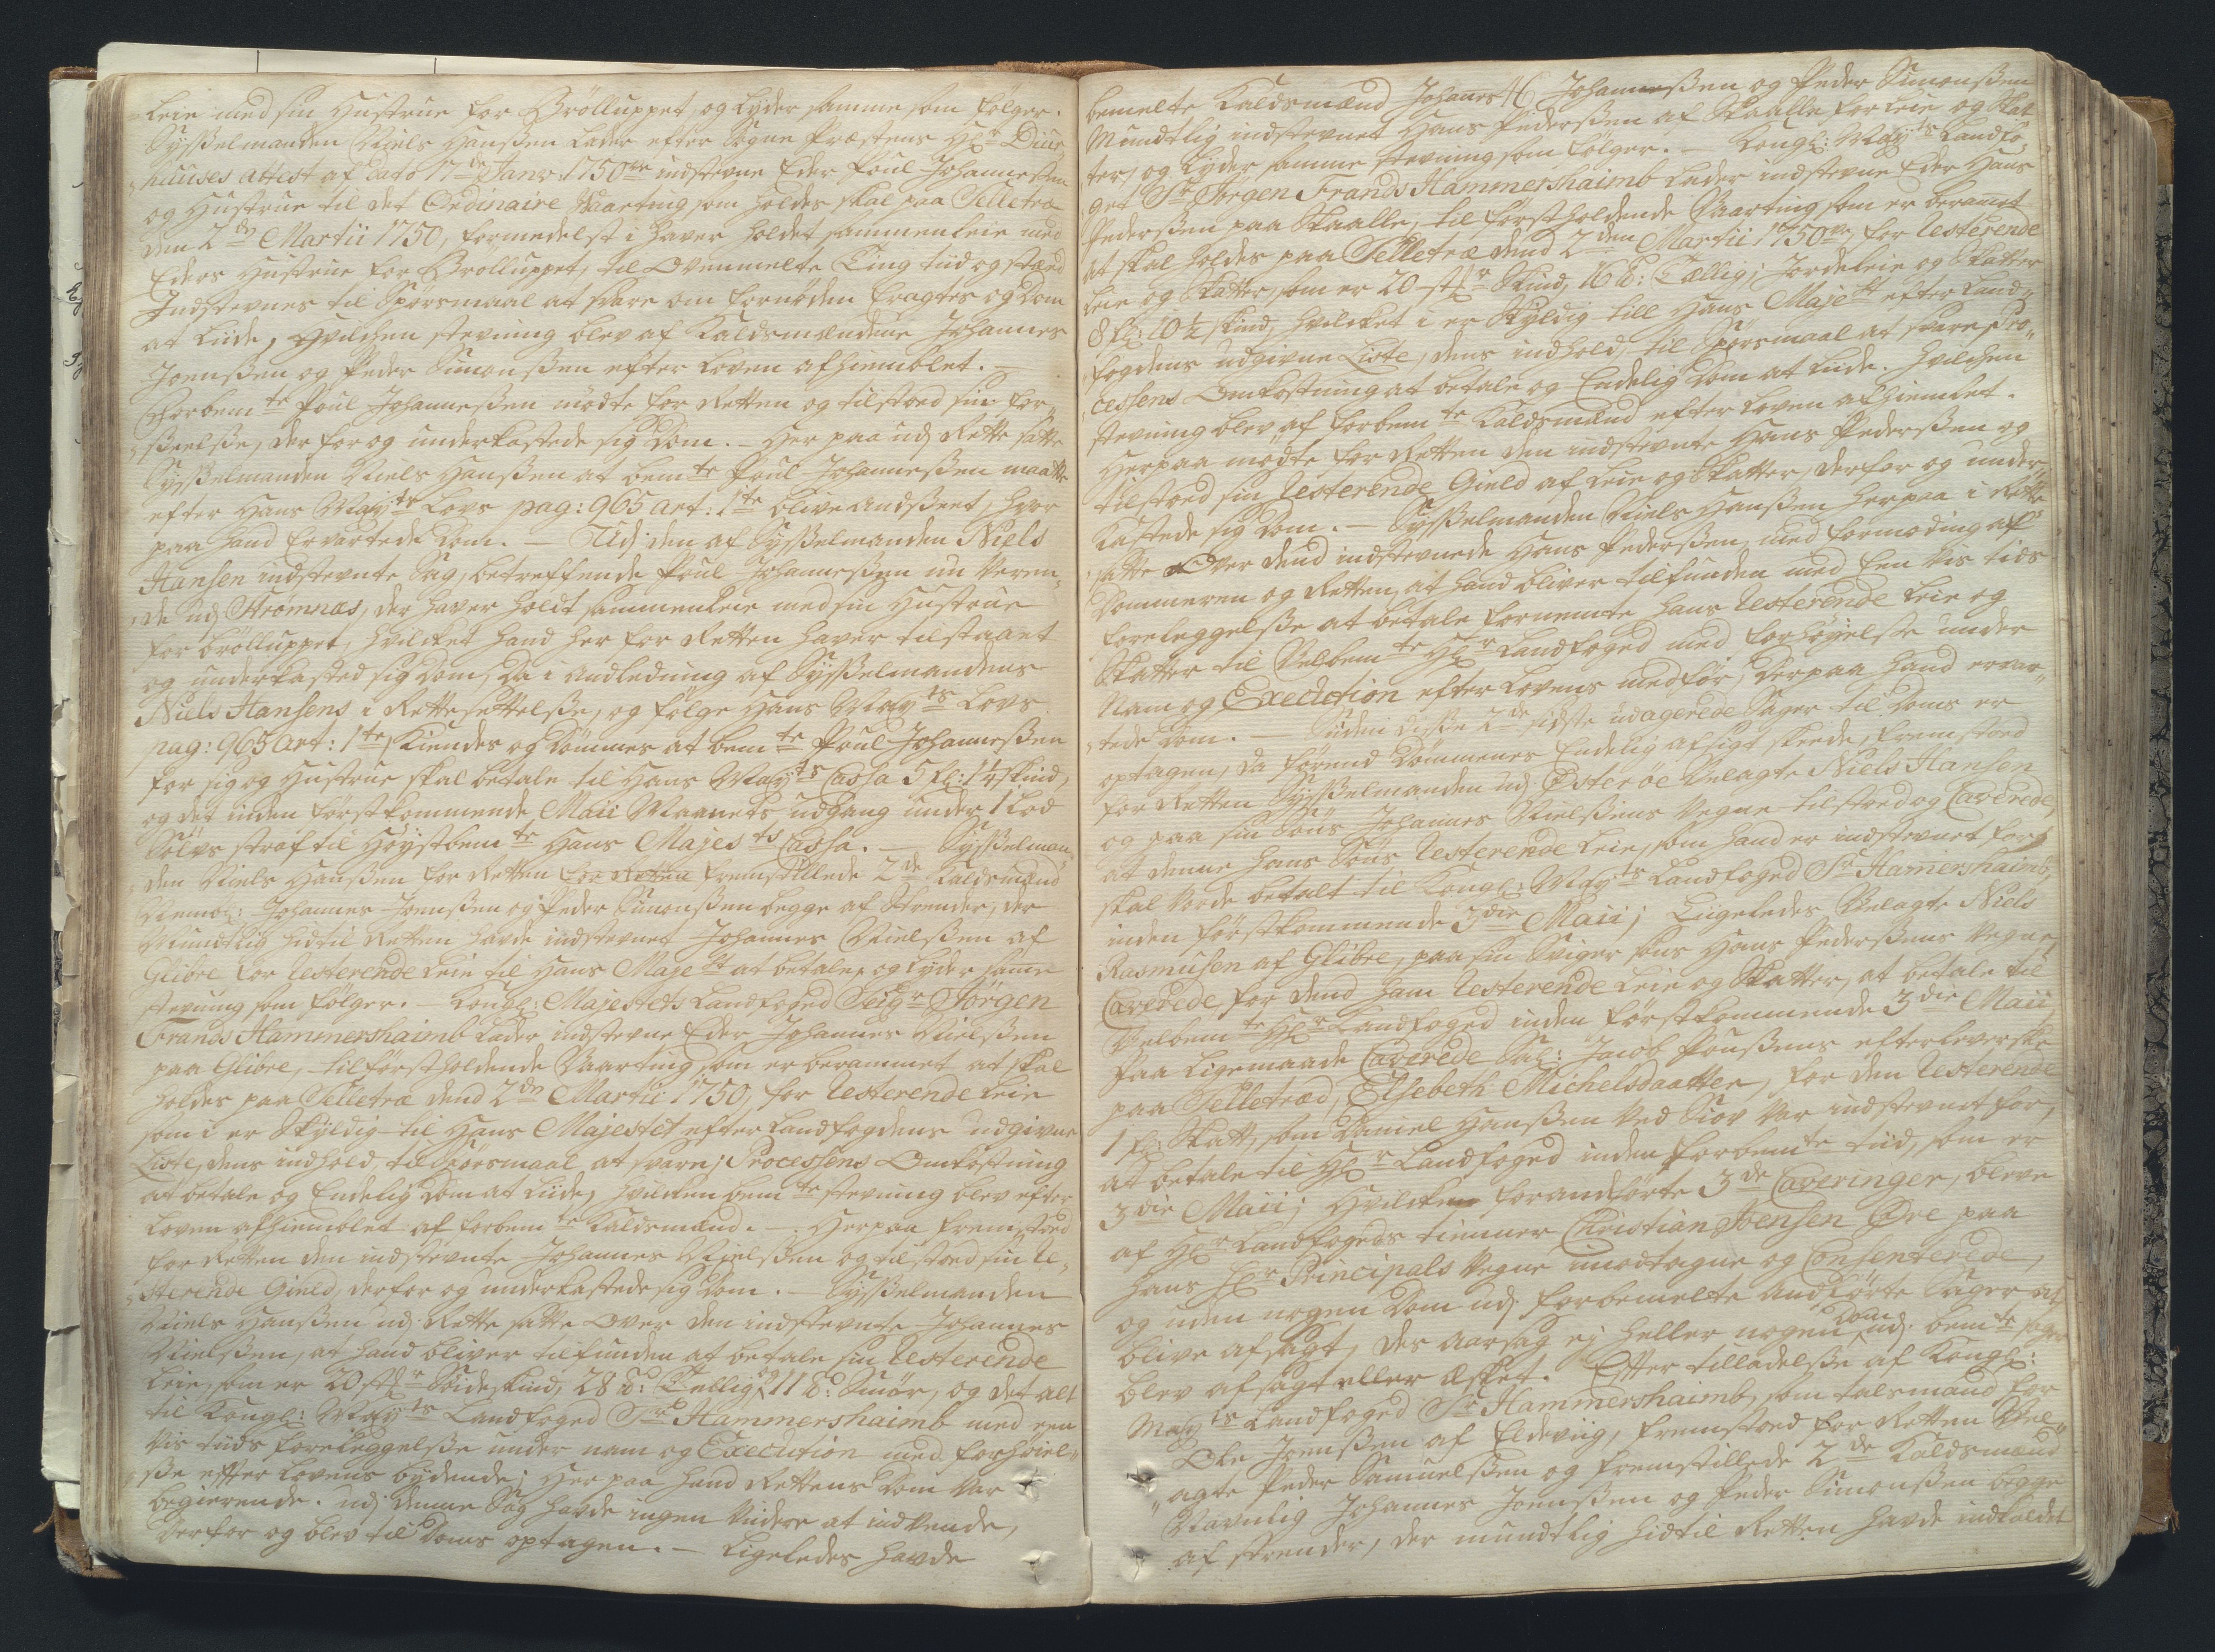 Leie med sin Hustrue for Brölluppet, og lyder samme som fölger.
Sysselmanden Niels Hanssen lader efter Sogne Præstens Hr Diur
huuses attest af dato 17de Janv: 1750 indstevne Eder Poul Johannessen
og Hustrue til det Ordinaire Vaarting som holdes skal paa Selletræ
den 2den Martii 1750, formedelst i haver holdet sammenleie med
Eders Hustrue for Brolluppet, til Ovenmelte Ting tiid og stæd
Indstevnes til Spörsmaal at svare om fornöden eragtes og Dom
at liide, Hvilchen stevning blev af Kaldsmændene Johannes
Joenssen og Peder Simonssen efter Loven afhiemblet. -
Forbemte Poul Johannessen mödte for Retten og tilstoed sin for-
seelsse, der for og underkastede sig Dom. - Her paa udj Rette satte
Sysselmanden Niels Hanssen at bemte Poul Johannessen maatte
efter Hans Mayts Lovs pag: 965 art: 1te blive andseet, hvor
paa hand Ervartede Dom. - Udj den af Sysselmanden Niels
Hansen indstevnte Sag, betreffende Poul Johannessen nu Væren-
de udj Strömnæs, der haver holdt sammenleie med sin Hustrue
for brölluppet, hvilcket hand her for Retten haver tilstaaet
og underkasted sig Dom, Da i andledning af Sysselmandens
Niels Hansens i Rettesettelsse, og fölge Hans Mayts Lovs
pag: 965 Art: 1te, Kiendes og Dömmes at bemte Poul Johannessen
for sig og Hustrue skal betale til Hans Mayts Cassa 5 Rl: 14 skind,
og det inden förstkommende Maii Maanets udgang under 1 Lod
Sölvs straf til Höystbemte Hans Majests Cassa. - Sysselman-
den Niels Hanssen for Retten for Retten fremstillede 2de Kaldsmænd
Nemol: Johannes Joenssen og Peder Simonssen begge af Strender, der
Mundtlig hidtil Retten havde indstevnet Johannes Nielssen af
Glibre for Resterende Leie til Hans Majestt at betale, og lyder samme
stevning som fölger. - Kongl: Majestets Landfoged Seigr Jörgen
Frands Hammershaimb lader indstevne Eder Johannes Nielssen
paa Glibre, til förstholdende Vaarting som er berammet at skal
holdes paa Selletræ dend 2den Martii 1750, for Resterende Leie
som i er Skyldig til Hans Majestet efter Landfogdens udgivne
Liste, dens indhold, til spörsmaal at svare; Processens Omkostning
at betale og Endelig Dom at Liide, hvilcken bemte stevning blev efter
Loven afhiemblet af forbemte Kaldsmænd. - Herpaa fremstoed
for Retten den indstevnte Johannes Nielssen og tilstoed sin Re-
sterende Gield, derfor og underkastede sig Dom. - Sysselmanden
Niels Hanssen udj Rette satte Over den indstevnte Johannes
Nielssen, at hand bliver tilfunden at betale sin Resterende
Leie, som er 20 stkr Söideskind, 28 ℔: Tællig, 11 ℔: Smör, og det alt
til Kongl: Mayts Landfoged Sr Hammershaimb med een
vis tiids foreleggelsse under nam og Execution med forhöiel-
sse efter Lovens bydende; Her paa hand Rettens Dom var
begierende. udj denne Sag havde ingen videre at indvende,
derfor og blev til Doms optagen. - Ligeledes havde
46
bemelte Kaldsmænd Johanes Johannessen og Peder Simonssen
Mundtlig indstevnet Hans Pederssen af Skaalle for Leie og Skat
ter, og lyder samme stevning som fölger. - Kongl: Mayts Landfo
get Sr Jörgen Frands Hammershaimb lader indstevne Eder Hans
Pederssen paa Skaalle, til förstholdende Vaarting som er beramet
at skal holdes paa Selletræ dend 2den Martii 1750, for Resterende
Leie og Skatter, som er 20 stkr Skind, 16 ℔: Tællig; Jordeleie og Skatter
8 Rl: 10½ skind, hvilcket i er Skyldig till Hans Majestt efter Land-
fogdens udgivne Liste, dens indhold, til Spörsmaal at svare, Pro-
cessens Omkostning at betale og Endelig Dom at liide. hvilchen
stevning blev af forbemte Kaldsmænd efter Loven afhiemlet.
Herpaa mödte for Retten den indstevnte Hans Pederssen og
tilstoed sin Resterende Gield af Leie og Skatter, derfor og under-
kastede sig Dom. - Sysselmanden Niels Hanssen herpaa i Rette
satte Over dend indstevnede Hans Pederssen, med formoding af
Dommeren og Retten, at hand bliver tilfunden med Een vis tids
foreleggelsse at betale fornemte hans Resterende Leie og
Skatter til Velbemte Hr Landfoged med forhöyelsse under
Nam og Execution efter Lovens medför; derpaa hand ervar-
tede Dom. - Siiden disse 2de sidste udagerede Sager til Doms er
optagen, da förend Dömmenes Endelig afsigt skeede, fremstoed
for Retten Sysselmanden udj Österöe Velagte Niels Hansen
og paa sin Söns Johannes Nielssens Vegne tilstoed og Caverede,
at denne hans Söns Resterende Leie, som hand er indstevnet for,
skal vorde betalt til Kongl: Mayts Landfoged Sr Hamershaimb,
inden förstkommende 3die Maii; Liigeledes Velagte Niels
Rasmusen af Glibre, paa sin Sviger söns Hans Pederssens Vegne,
Caverede for dend ham Resterende Leie og Skatter, at betale til
Velbemte Hr Landfoged inden förstkommende 3die Maii,
Paa Ligemaade Caverede Sal: Jacob Poulssens efterleverske
paa Selletræd, Elsebeth Michelsdaatter, for den Resterende
1 Rl: Skatt, som Daniel Hanssen ved Siov var indstevnet for,
at betale til Hr Landfoged inden forbemte tiid, som er
3die Maii; Hvilcken forandförte 3de Caveringer, bleve
af Hr Landfogeds tienner Christian Joensen Öre paa
hans Hr Principals Vegne imodtagne og Consenterede,
og uden nogen Dom udj forbemelte andförte Sager at
blive afsagt, des aarsag ej heller nogen Dom udj bemte sager
blev afsagt eller æsket. Efter tilladelsse af Kongl:
Mayts Landfoged Sr Hammershaimb, som talsmand for
Ole Joenssen af Eldeviig, fremstoed for Retten Vel-
agte Peder Samuelssen og fremstillede 2de Kaldsmænd
Navnlig Johannes Joenssen og Peder Simonssen begge
af strender, der mundtlig hidtil Retten havde indkaldet